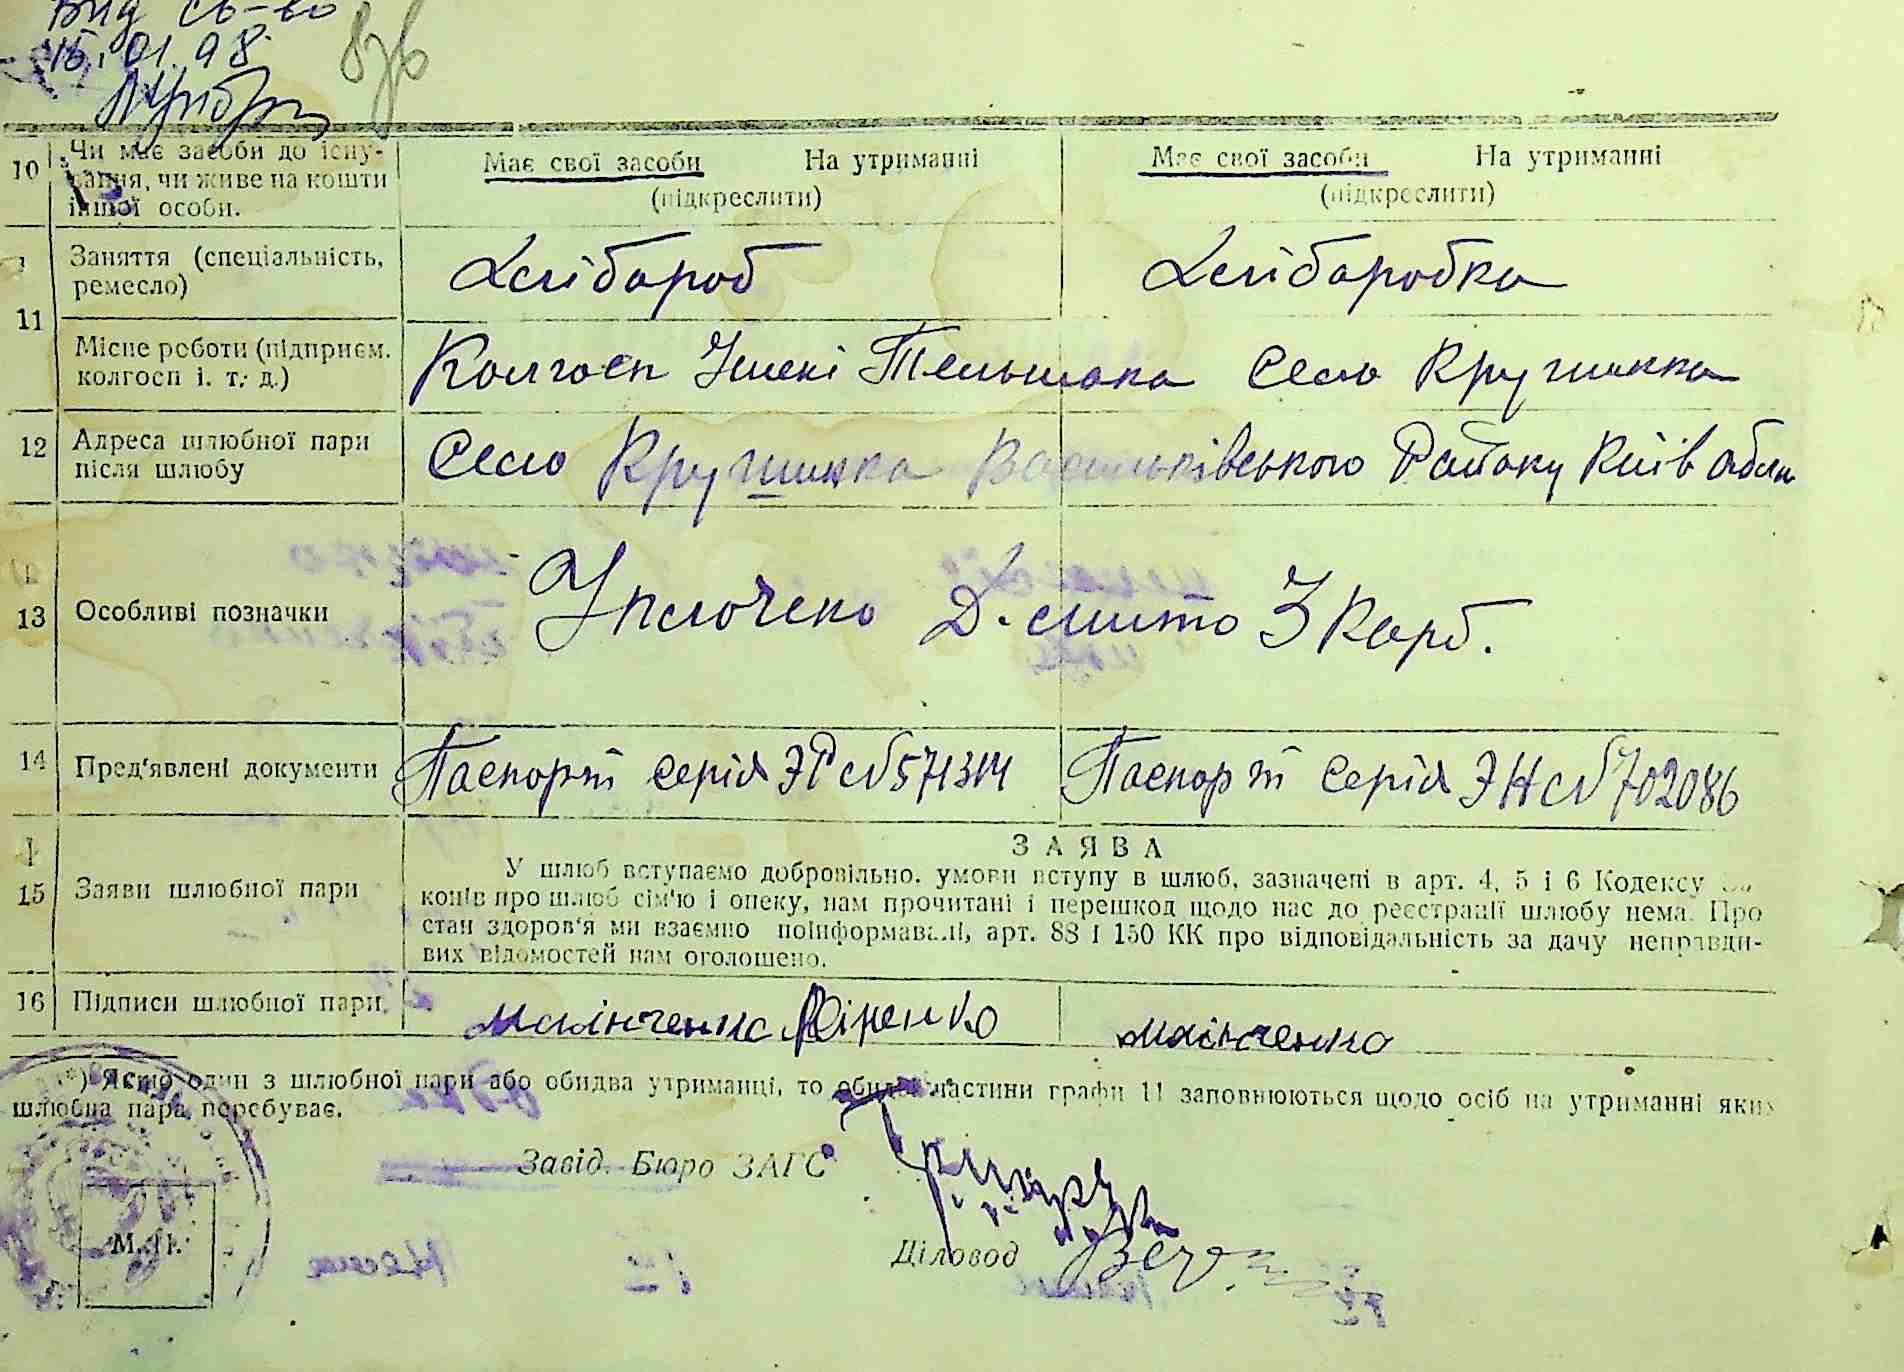 Вид св-во
15.01.98
10 Чи має засоби до існу-
вання, чи живе на кошти
іншої особи.
Має свої засоби На утриманні
(підкреслити)
Має свої засоби На утриманні
(підкреслити)
11 Заняття (спеціальність,
ремесло)
Хлібороб
Хлібаробка
Місце роботи (підприєм.
колгосп і. т. д.)
Колгосп Імені Тельмана Село Кругшика
12 Адреса шлюбної пари
після шлюбу
Село Васильківського Району Київ обла
13 Особливі позначки
Уплочено Д. мито 3 Карб.
14 Пред'явлені документи
Паспорт серія ЭР № 571314
Паспорт серія ЭН № 702086
15 Заяви шлюбної пари
ЗАЯВА
У шлюб вступаємо добровільно. умови вступу в шлюб, зазначені в арт. 4, 5 і 6 Кодексу
конів про шлюб сім'ю і опеку, нам прочитані і перешкод щодо нас до реєстрації шлюбу нема. Про
стан здоров'я ми взаємно поінформавалі, арт. 88 і 150 КК про відповідальність за дачу неправди-
вих відомостей нам оголошено.
16 Підписи шлюбної пари.
*) Якщо один з шлюбної пари або обидва утриманці, то обидві частини графи 11 заповнюються щодо осіб на утриманні яких
шлюбна пара перебуває.
Завід. Бюро ЗАГС
М. П.
Діловод